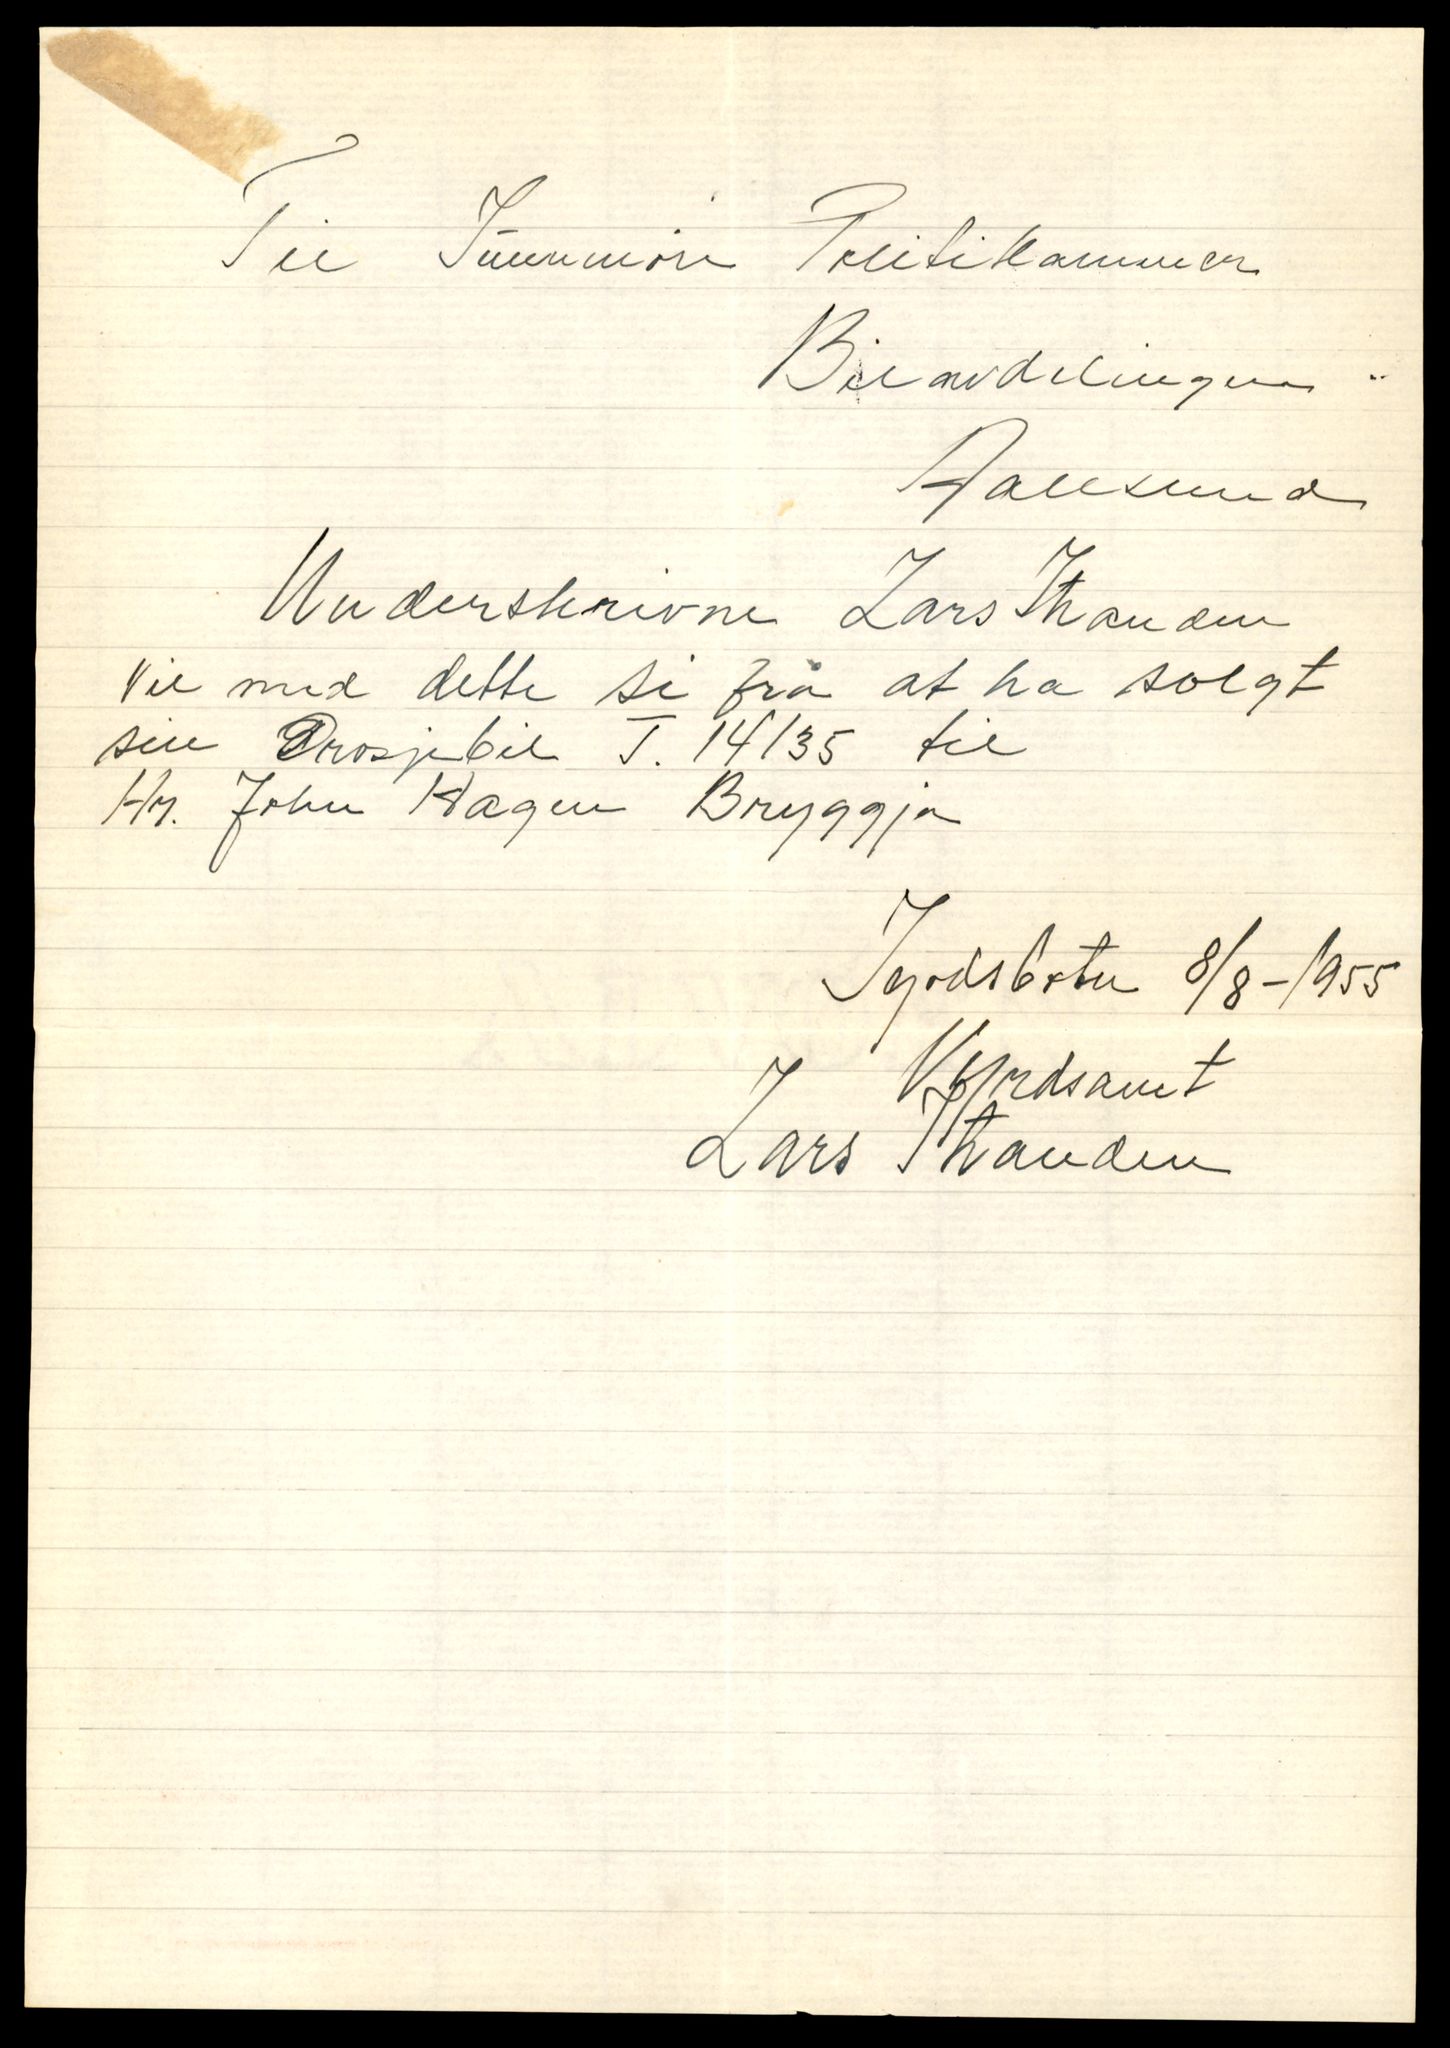 Til Sunnmöre Politikammer
Bilavdelingen
Aalesund
Underskrivne Lars Stranden
vil med dette si frå at ha solgt
sin Drosjebil T. 14135 til
Hr. John Hagen Bryggja
Syvdsbotn 8/8-1955
Vyrdsamt
Lars Stranden